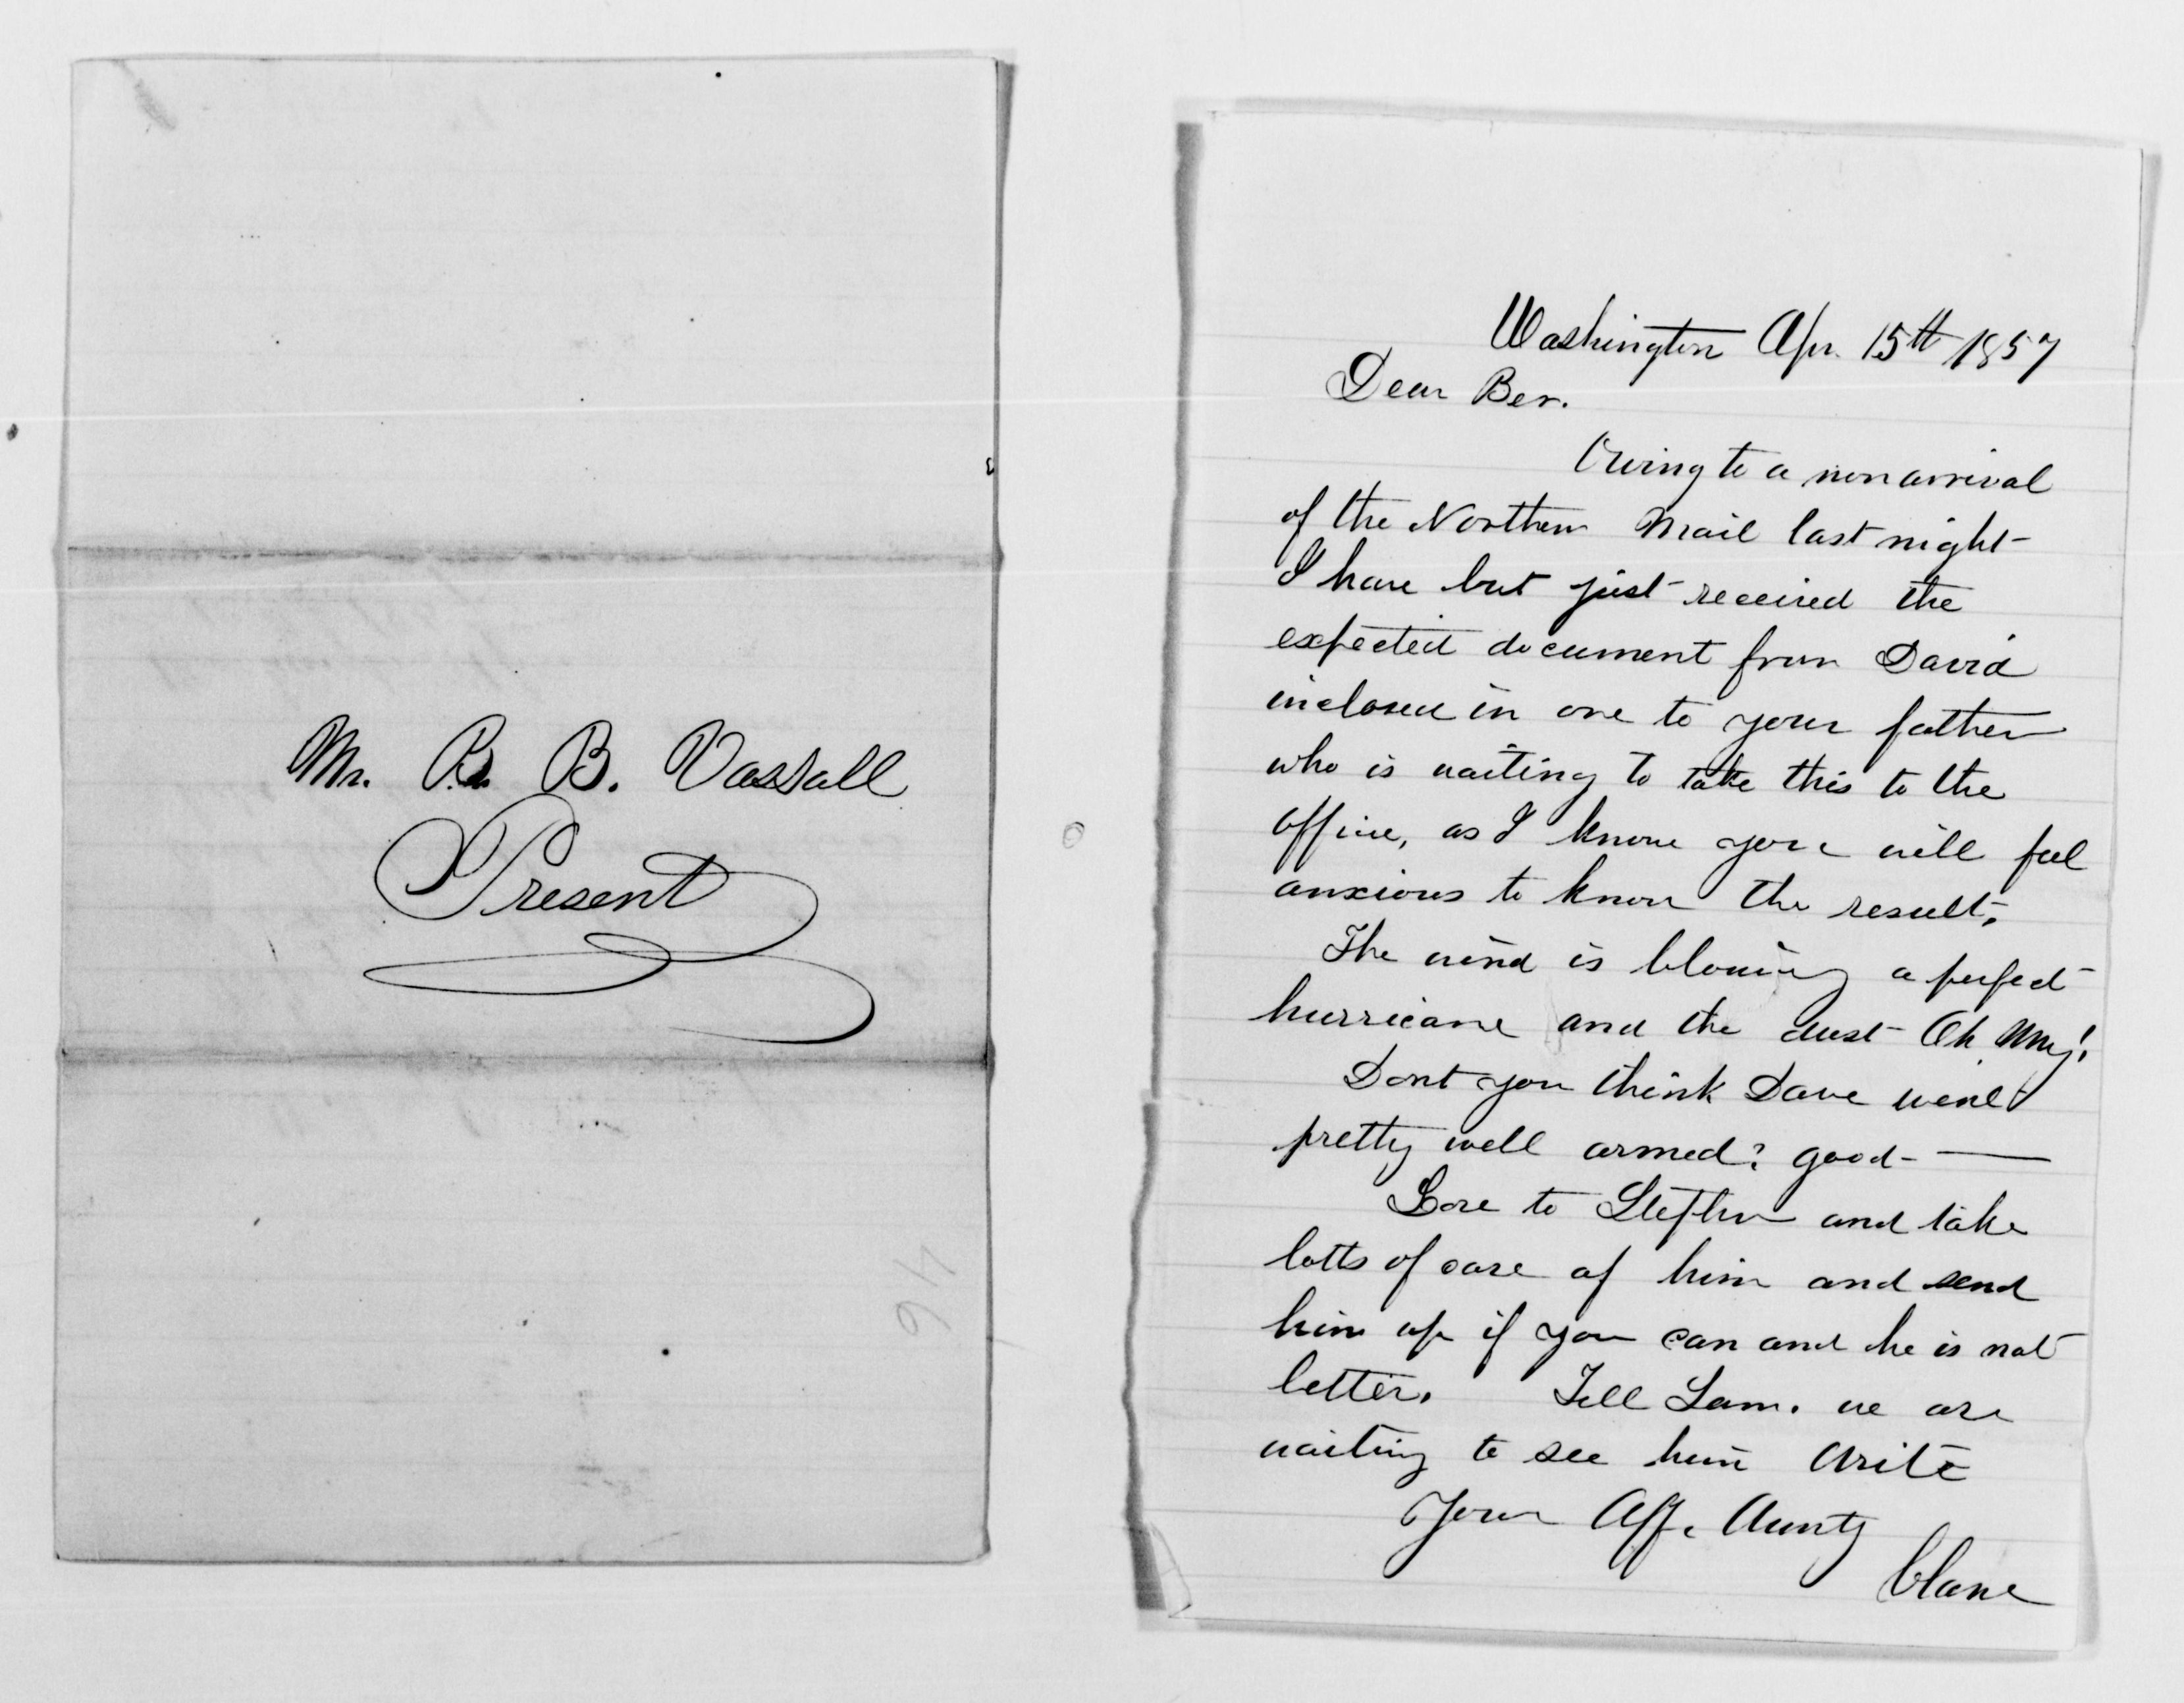 Mr. B. B. Vassall
Present
46
Washington Apr. 15th 1857
Dear Ber.
Owing to a non arrival
of the Northern Mail last night
I have but just received the
expected document from David
inclosed in one to your father
who is waiting to take this to the
office, as I know you will feel
anxious to know the result.
The wind is blowing a perfect
hurricane and the dust Oh My!
Dont you think Dave went
pretty well armed? good —
Love to Stephen and take
lotts of care of him and send
him up if you can and he is not
better. Tell Sam. we are
waiting to see him Write
Your Aff. Aunty
Clara